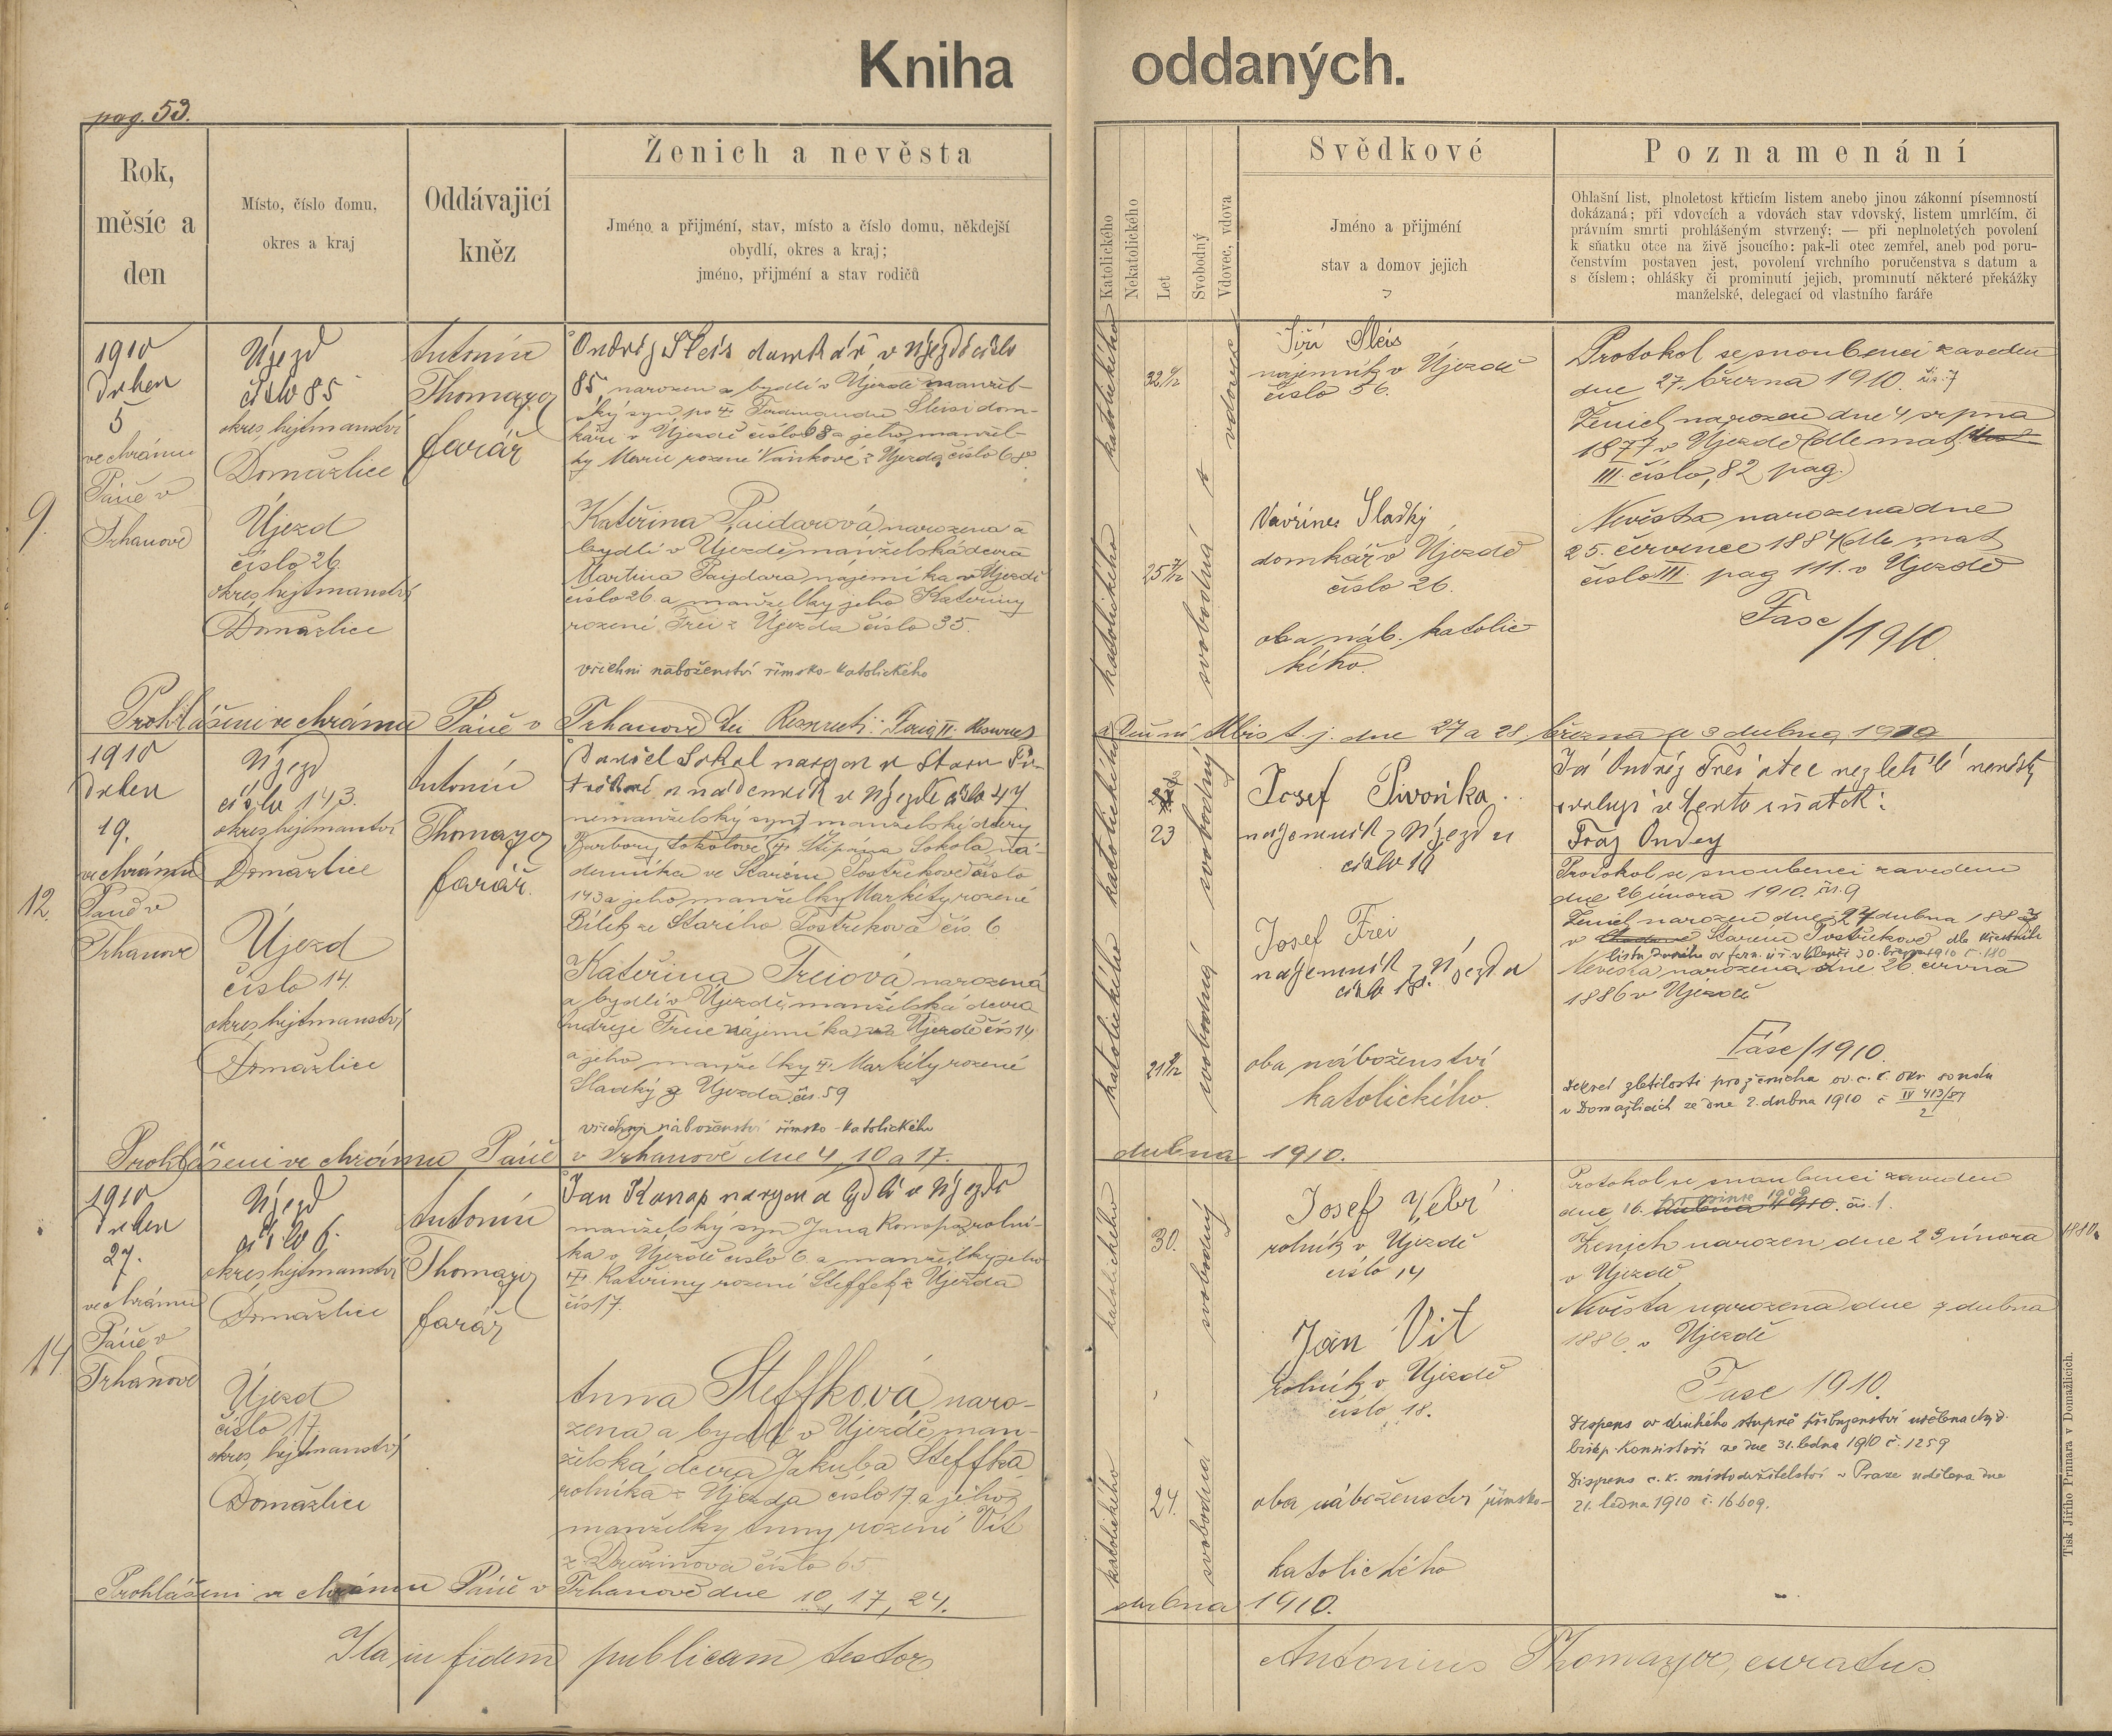 Kniha oddaných.
pag. 53.
Rok,
měsíc a
den
Místo, číslo domu,
okres a kraj
Oddávající
kněz
Ženich a nevěsta
Jméno a přijmení, stav, místo a číslo domu, někdejší
obydlí, okres a kraj;
jméno, přijmení a stav rodičů
Katolického
Nekatolického
Let
Svobodný
Vdovec, vdova
Svědkové
Jméno a přijmení
stav a domov jejich
Poznamenání
Ohlašní list, plnoletost křticím listem anebo jinou zákonní písemností
dokázaná; při vdovcích a vdovách stav vdovský, listem umrlčím, či
právním smrti prohlášeným stvrzený; — při neplnoletých povolení
k sňatku otce na živě jsoucího; pak-li otec zemřel, aneb pod poru-
čenstvím postaven jest, povolení vrchního poručenstva s datum a
s číslem; ohlášky či prominutí jejich, prominutí některé překážky
manželské, delegací od vlastního faráře
9.
1910
Duben
5
ve chrámu
Páně v
Trhanově
Újezd
číslo 85
okres, hejtmanství
Domažlice
Újezd
číslo 26.
okres, hejtmanství
Domažlice
Antonín
Thomayer
farář
Ondřej Sleis domkář v Újezdě číslo
85, narozen a bydlí v Újezdě manžel-
ský syn po Ferdinandu Sleisi dom-
káři v Újezdě číslo 68 a jeho manžel-
ky Marie rozené Vaňkové z Újezda číslo 68
Kateřina Paidarová narozena a
bydlí v Újezdě, manželská dcera
Martina Paydara nájemníka v Újezdě
číslo 26. a manželky jeho Kateřiny
rozené Frei z Újezda číslo 35.
všichni náboženství římsko-katolického
katolického
32
vdovec
katolického
25
svobodná
Jiří Sleis
nájemník v Újezdě
číslo 56.
Vavřinec Sladký
domkář v Újezdě
číslo 26.
oba náb. katolic-
kého.
Protokol se snoubenci zaveden
dne 27. března 1910. čís. 7
Ženich narozen dne 4 srpna
1877 v Újezdě (dle mat.
III. číslo, 82 pag.)
Nevěsta narozena dne
25. července 1884 dle mat
číslo III. pag 111. v Újezdě
Fasc/1910.
Prohlášeni ve chrámu Páně v Trhanově t. j. dne 27 a 28. března a 3 dubna, 1910
12.
1910
Duben
19.
ve chrámu
Páně v
Trhanově
Újezd
číslo 143.
okres, hejtmanství
Domažlice
Újezd
číslo 14.
okres, hejtmanství
Domažlice
Antonín
Thomayer
farář.
Daniel Sokol narozen v Starém Po-
střekově a nádenník v Újezdě číslo 47
nemanželský syn manželský dcery
Barbory Sokolové Štěpána Sokola ná-
denníka ve Starém Postřekově číslo
143 a jeho manželky Markéty rozené
Bílek ze Starého Postřekova čís. 6
Kateřina Freiová narozená
a bydlí v Újezdě, manželská dcera
Ondřeje Freie nájemníka v Újezdě čís 14
a jeho manželky Markéty rozené
Sladký z Újezda, čís. 59
všichni náboženství římsko-katolického
katolického
23
svobodný
katolického
21
svobodná
Josef Pivoňka
nájemník z Újezda
číslo 16
Josef Frei
nájemník z Újezda
číslo
oba náboženství
katolického.
Já Ondřej Frei otec nezletilé nevěsty
svoluji v tento sňatek:
Protokol se snoubenci zaveden
dne 26 února 1910. čís. 9
Ženich narozen dne 27 dubna
v Starém Postřekově dle křestního
listu
Nevěsta narozena dne 26. června
1886 v Újezdě
Fasc/1910.
Dekret zletilosti pro ženicha od c. k. okr. soudu
v Domažlicích ze dne 2. dubna 1910 č IV 413/87
2
Prohlášeni ve chrámu Páně v Trhanově dne 4, 10 a 17. dubna 1910.
14
1910
Duben
27.
ve chrámu
Páně v
Trhanově
Újezd
číslo 6.
okres, hejtmanství
Domažlice
Újezd
číslo 17
okres, hejtmanství
Domažlice
Antonín
Thomayer
farář
Jan Konop narozen a bydlí v Újezdě
manželský syn Jana Konopa, rolní-
ka v Újezdě číslo 6 a manželky jeho
Kateřiny rozené Steffek z Újezda
čís 17.
Anna Steffková, naro-
zena a bydlí v Újezdě man-
želská dcera Jakuba Steffka
rolníka z Újezda číslo 17 a jeho
manželky Anny rozené Vít
z Dražinova číslo 65
katolického
30.
svobodný
katolického
24.
svobodná
Josef Vebr
rolník v Újezdě
číslo 14
Jan Vít
rolník v Újezdě
číslo 18.
oba náboženství římsko-
katolického
Protokol se snoubenci zaveden
dne 16. prosince 1909 čís. 1.
Ženich narozen dne 23 února 1880.
v Újezdě
Nevěsta narozena dne 7 dubna
1886 v Újezdě
Fasc 1910.
Dispens od druhého stupně příbuzenství udělena
bisk. Konsistoří ze dne 31. ledna 1910 č. 1259
Dispens c. k. místodržitelství v Praze udělena dne
21. ledna 1910 č. 16609.
Prohlášeni ve chrámu Páně v Trhanově dne 10, 17, 24. dubna 1910.
Ita in fidem publicam testor Antonius Thomayer, curatus.
Tisk Jiřího Prunara v Domažlicích.